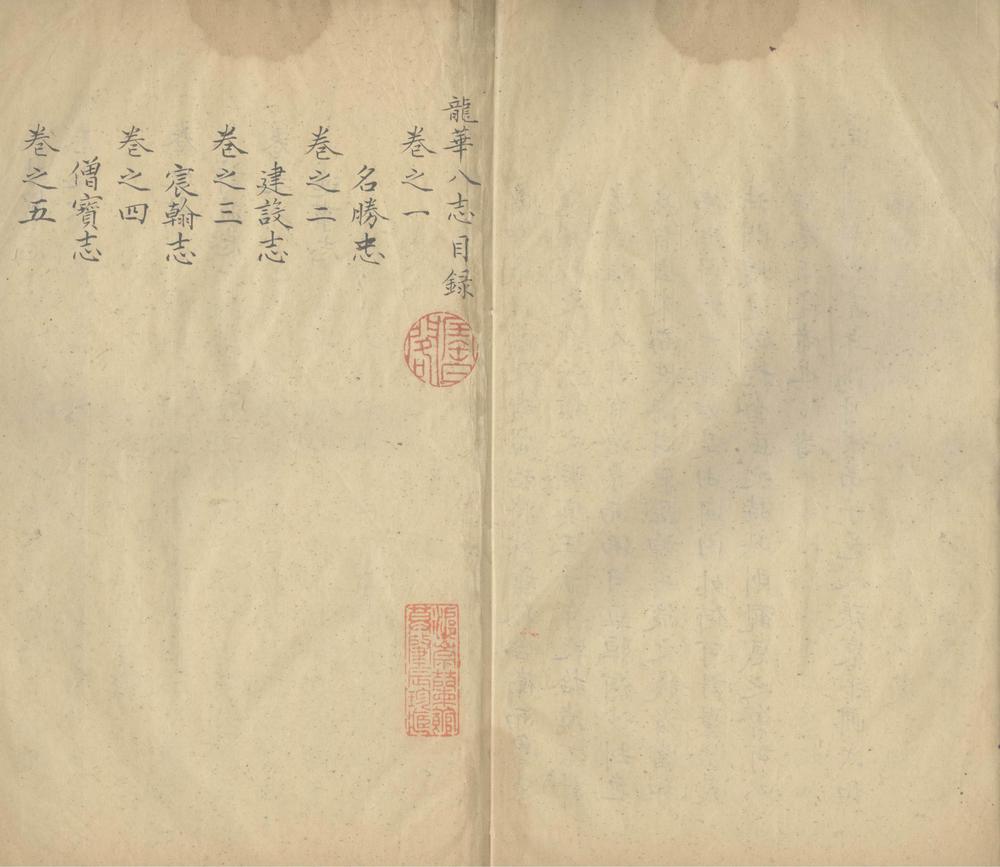 龍華八志目録
卷之一
名勝志
卷之二
建設志
卷之三
宸翰志
卷之四
僧寳志
卷之五